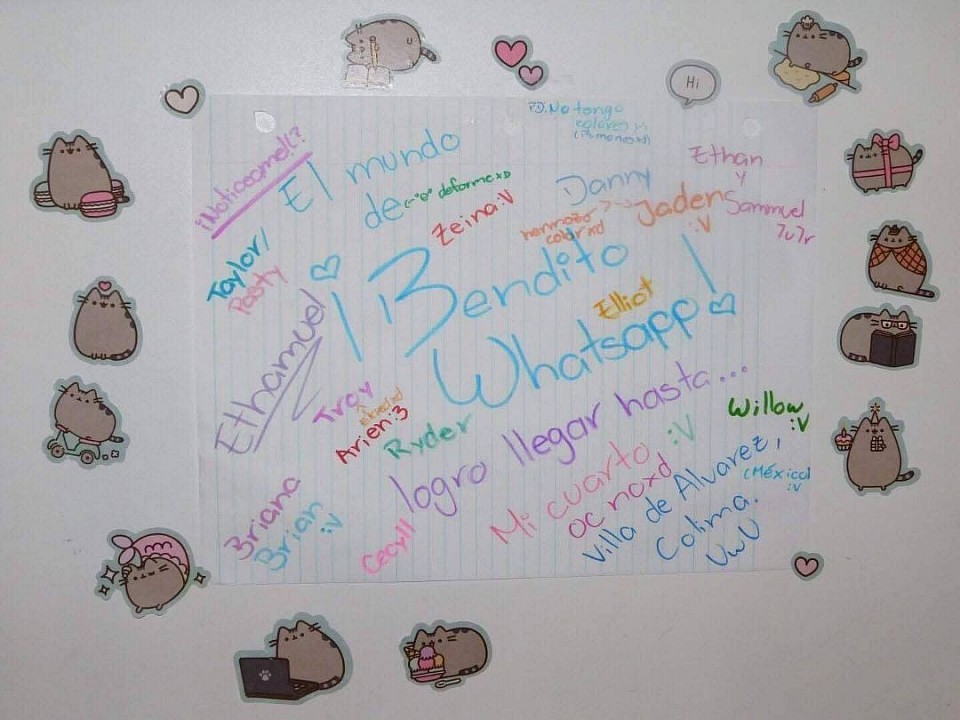 Hi
PD: No tengo
colores :v
¡Noticeameh?
El mundo
de
(-"e" deforme xD
Zeina :V
Danny
hermoso
color xd
Jaden
:V
Ethan
y
Sammuel
7u7r
Taylor/
Patty
¡Bendito
Whatsapp!
Elliot
Ethamuel
Troy
Arien :3
Ryder
logro llegar hasta...
Willow
:V
Mi cuarto :V
oc noxd
Villa de Alvarez,
Colima.
(México)
:v
UwU
Briana
Brian
:V
Cecyll